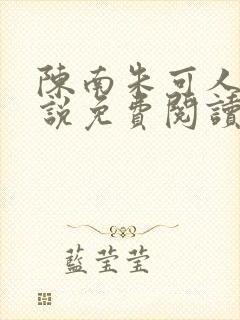 陳南朱可人
說免費閱讀
藍莹莹